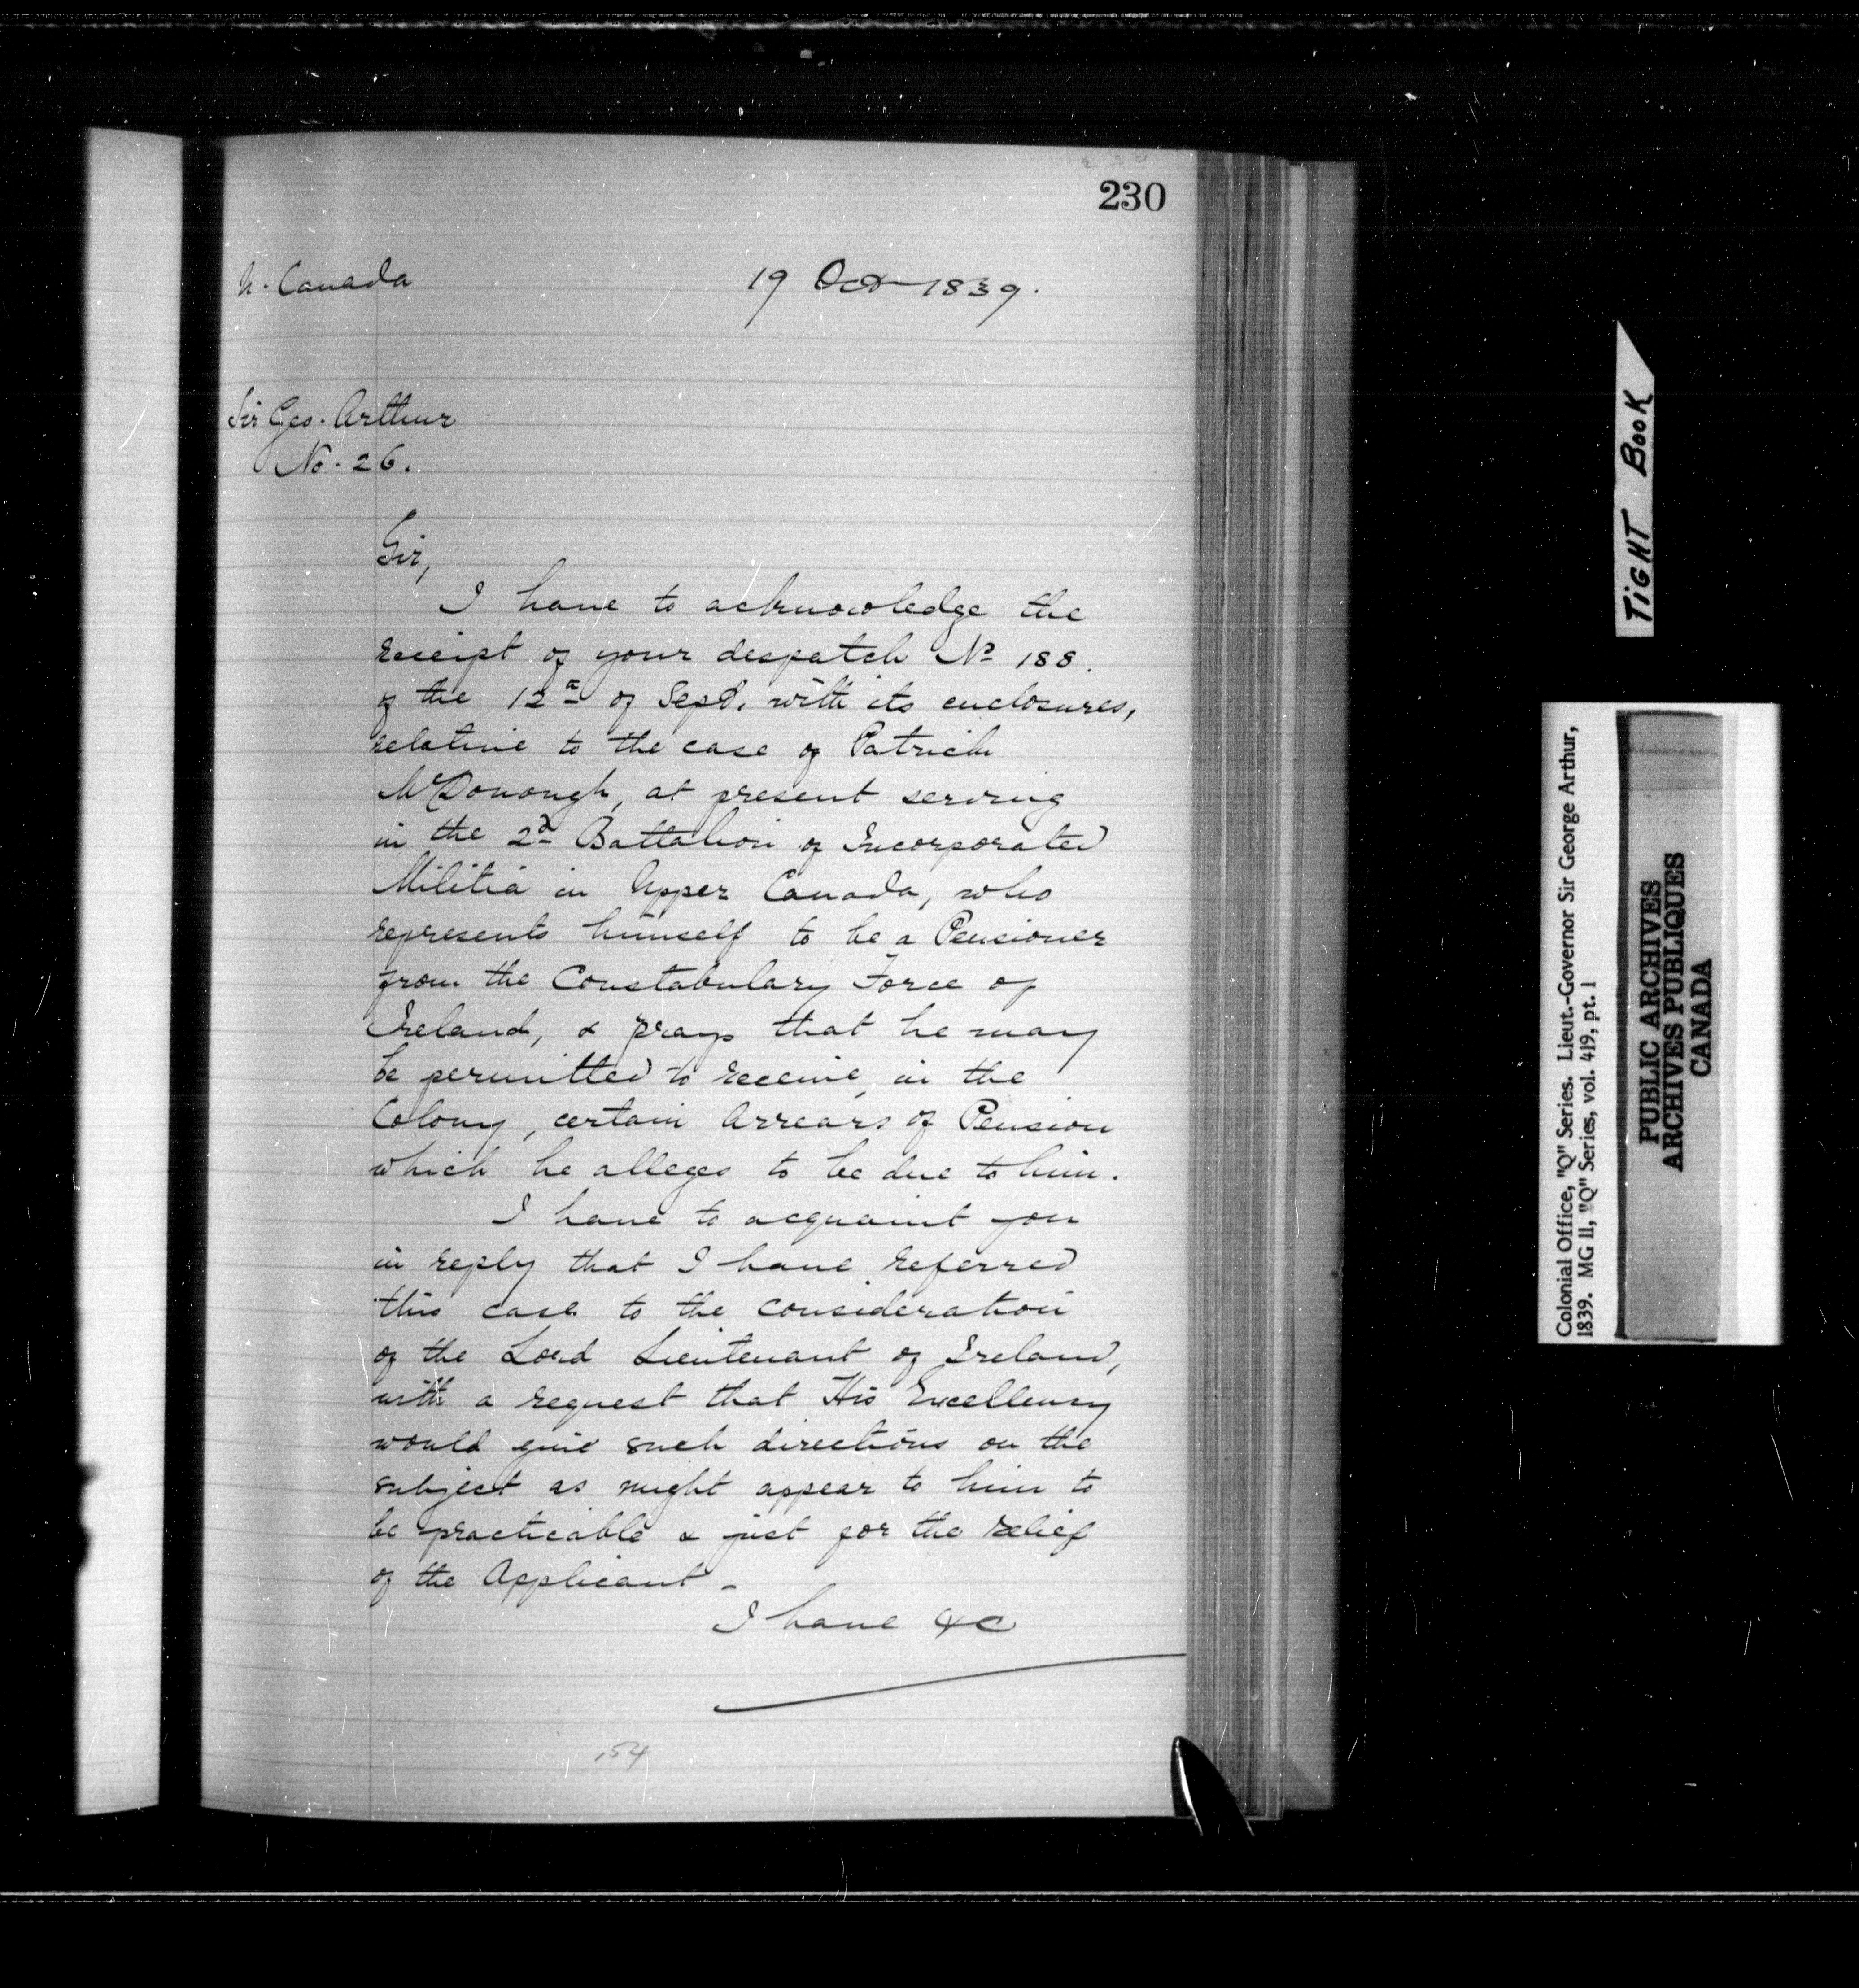 230
U. Canada
19 Oct 1839.
Sir Geo. Arthur
No. 26.
Sir,
I have to acknowledge the
receipt of your despatch No 188.
of the 12th of Sept. with its enclosures,
relative to the case of Patrick
McDonough, at present serving
in the 2d Battalion of Incorporated
Militia in Upper Canada, who
represents himself to be a Pensioner
from the Constabulary Force of
Ireland, & prays that he may
be permitted to receive, in the
Colony, certain Arrears of Pension
which he alleges to be due to him.
I have to acquaint you
in reply that I have referred
this case to the consideration
of the Lord Lieutenant of Ireland,
with a request that His Excellency
would give such directions on the
subject as might appear to him to
be practicable & just for the relief
of the Applicant -
I have &c
154
TIGHT BOOK
Colonial Office, "Q" Series. Lieut.-Governor Sir George Arthur,
1839. MG 11, "Q" Series, vol. 419, pt. 1
PUBLIC ARCHIVES
ARCHIVES PUBLIQUES
CANADA